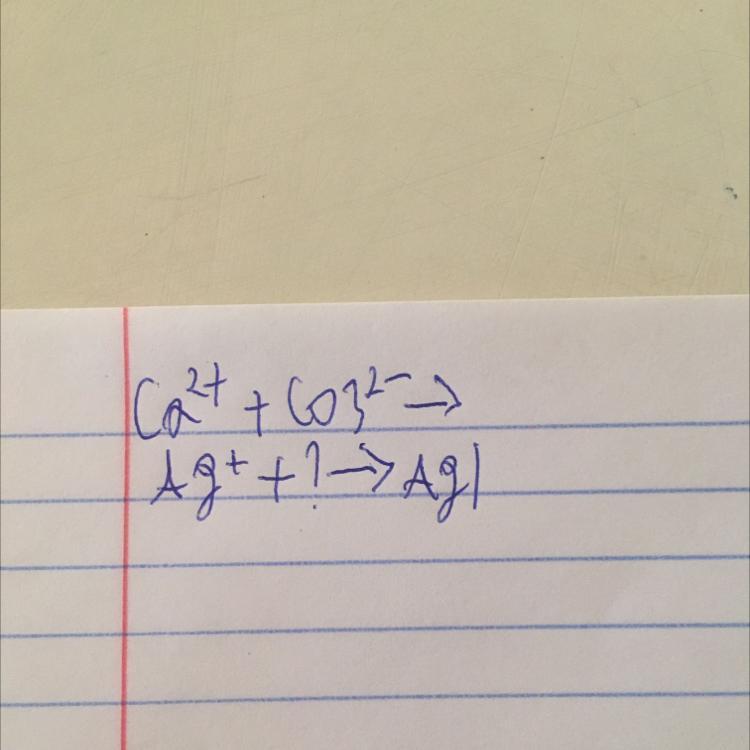 Ca²⁺ + CO3²⁻ →
Ag⁺ + ? → AgI